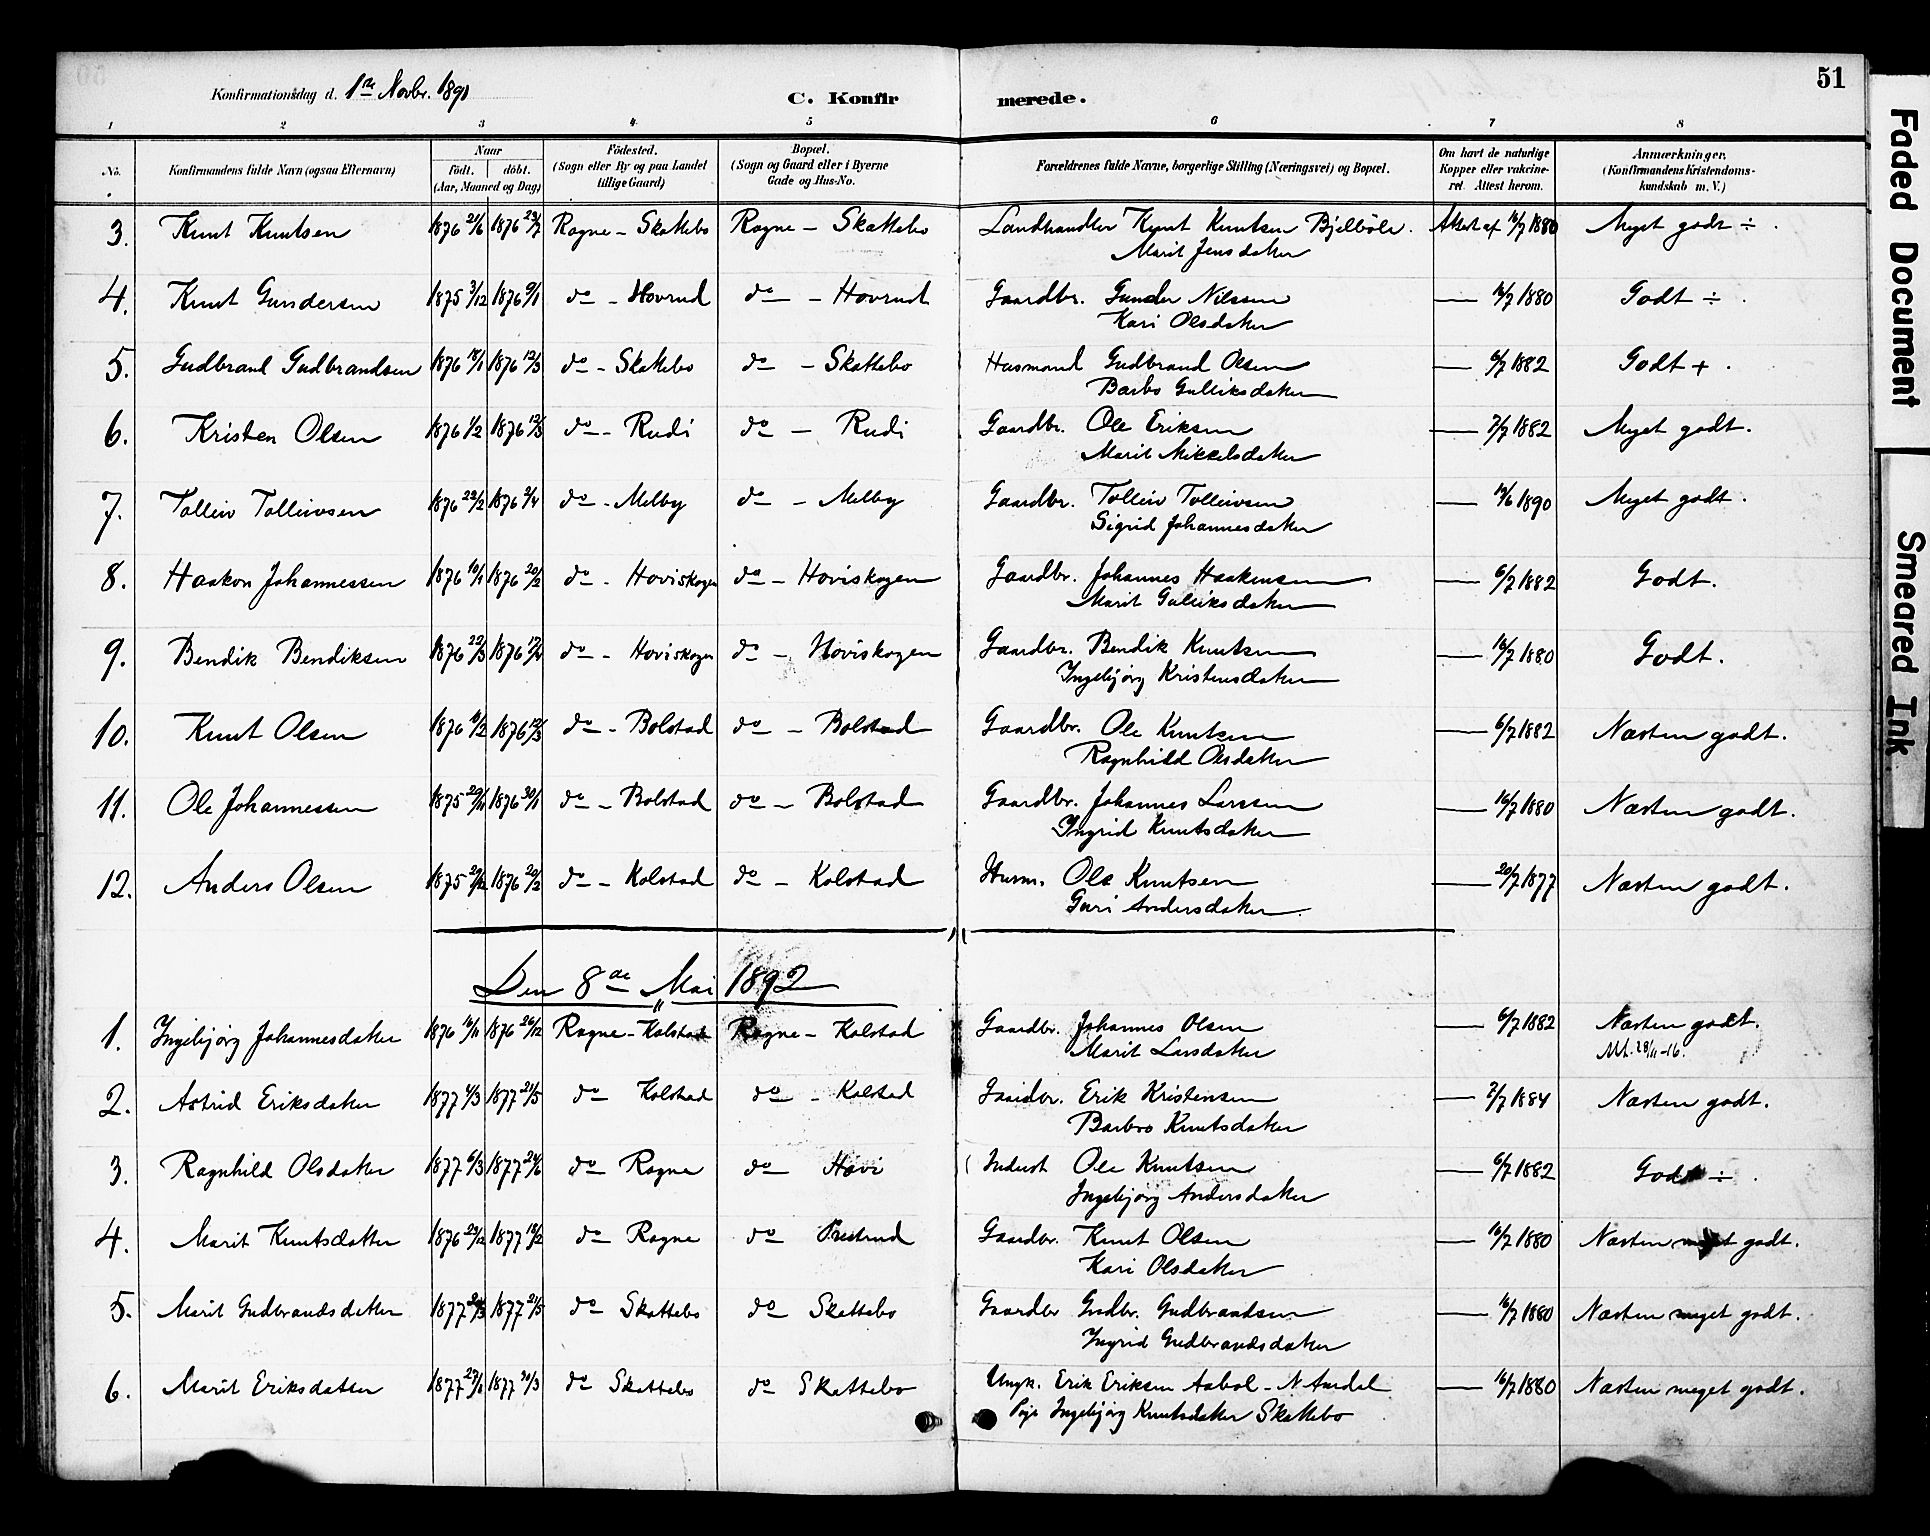 51
Konfirmationsdag d. 1ste Novbr. 1891
C. Konfirmerede.
1 2 3 4. 5 6 7 8
No. Konfirmandens fulde Navn (ogsaa Efternavn) Naar födt. döbt. (Aar, Maaned og Dag) Födested. (Sogn eller By og paa Landet tillige Gaard) Bopæl. (Sogn og Gaard eller i Byerne Gade og Hus-No. Forældrenes fulde Navne, borgerlige Stilling (Næringsvei) og Bopæl. Om havt de naturlige Kopper eller vakcineret. Attest herom. Anmærkninger. (Konfirmandens Kristendomskundskab m. V.)
3. Knut Knutsen 1876 21/6 1876 23/7 Rogne - Skattebo Rogne - Skattebo Landhandler Knut Knutsen Bjelbøle. Attest af 16/7 1880 Meget godt ÷.
Marit Jensdatter
4. Knut Gundersen 1875 3/12 1876 9/1 do - Hovrud do - Hovrud Gaardbr. Gunder Nilssen — 16/7 1880 Godt ÷.
Kari Olsdatter
5. Gudbrand Gudbrandsen 1876 18/1 1876 12/3 do - Skattebo do - Skattebo Husmand Gudbrand Olsen — 6/7 1882 Godt +.
Barbo Gulliksdatter
6. Kristen Olsen 1876 1/2 1876 12/3 do - Rudi do - Rudi Gaardbr. Ole Eriksen — 7/7 1882 Meget godt.
Marit Mikkelsdatter
7. Tolleiv Tolleivsen 1876 22/2 1876 2/4 do - Melby do - Melby Gaardbr. Tolleiv Tolleivsen — 12/6 1890 Meget godt.
Sigrid Johannesdatter
8. Haakon Johannessen 1876 10/1 1876 20/2 do - Hoviskogen do - Hoviskogen Gaardbr. Johannes Haakensen — 6/7 1882 Godt.
Marit Gulliksdatter
9. Bendik Bendiksen 1876 22/3 1876 17/4 do - Hoviskogen do - Hoviskogen Gaardbr. Bendik Knutsen — 16/7 1880 Godt.
Ingebjörg Kristensdatter
10. Knut Olsen 1876 10/2 1876 12/3 do - Bolstad do - Bolstad Gaardbr. Ole Knutsen — 6/7 1882 Næsten godt.
Ragnhild Olsdatter
11. Ole Johannessen 1875 29/11 1876 30/1 do - Bolstad do - Bolstad Gaardbr. Johannes Larssen — 16/7 1880 Næsten godt.
Ingrid Knutsdatter
12. Anders Olsen 1875 1876 20/2 do - Kolstad do - Kolstad Husm. Ole Knutsen — 20/7 1877 Næsten godt.
Guri Andersdatter.
Den 8de Mai 1892
1. Ingebjörg Johannesdatter 1876 1876 26/12 Rogne - Kolstad Rogne - Kolstad Gaardbr. Johannes Olsen — 6/7 1882 Næsten godt.
Marit Larsdatter 28/11-16.
2. Astrid Eriksdatter 1877 4/3 1877 21/5 do Kolstad do - Kolstad Gaardbr. Erik Kristensen — 7/7 1884 Næsten godt.
Barbro Knutsdatter
3. Ragnhild Olsdatter 1877 6/3 1877 24/6 do Rogne do Hovi Inderst Ole Knutsen — 6/7 1882 Godt ÷.
Ingebjörg Andersdatter
4. Marit Knutsdatter 1876 29/12 1877 18/2 do Rogne do Prestrud Gaardbr. Knut Olsen — 16/7 1880 Næsten meget godt.
Kari Olsdatter
5. Marit Gudbrandsdatter 1877 1877 21/5 do Skattebo do Skattebo Gaardbr Gudbr. Gudbrandsen — 16/7 1880 Næsten meget godt.
Ingrid Gudbrandsdatter
6. Marit Eriksdatter 1877 27/1 1877 30/3 do Skattebo do Skattebo Ungk. Erik Eriksen Aabol - N Aurdal — 16/7 1880 Næsten meget godt.
Pige Ingebjörg Knutsdatter Skattebo
Faded Document
Smeared Ink